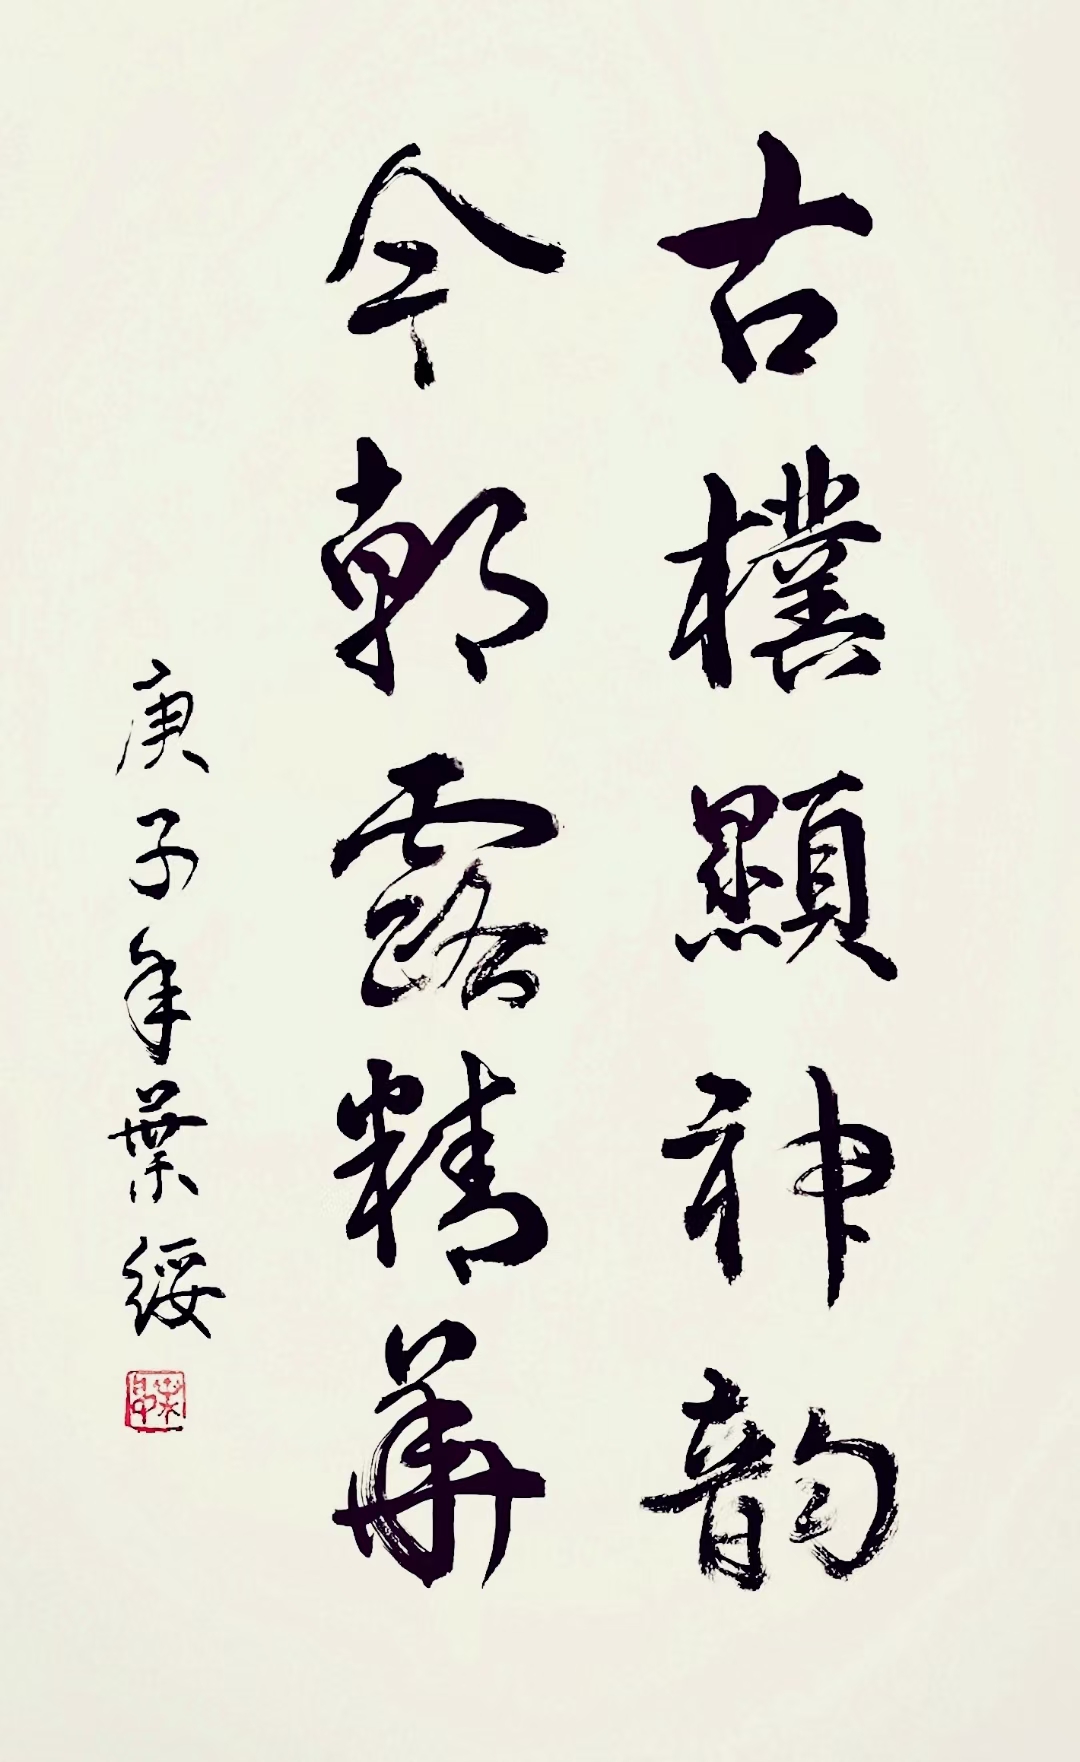 古樸顯神韵
今朝露精華
庚子年葉綏